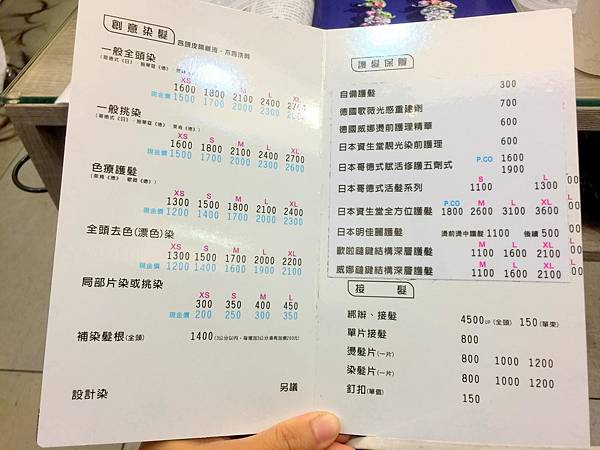 創意染髮 含頭皮隔離液，不含洗剪
一般全頭染
XS S M L XL
1600 1800 2100 2400 2700
現金價 1500 1700 2000 2300
一般挑染
XS S M L XL
1600 1800 2100 2400 2700
現金價 1500 1700 2000 2300 2600
色療護髮
XS S M L XL
1300 1500 1800 2100 2400
現金價 1200 1400 1700 2000 2300
全頭去色(漂色)染
XS S M L XL
1300 1500 1700 2000 2200
現金價 1200 1400 1600 1900 2100
局部片染或挑染
XS S M L
300 350 400 450
現金價 200 250 300 350
補染髮根(全頭) 1400 (3公分以內，每增加3公分須再加價200元)
設計染 另議
護髮保養
自備護髮 300
德國歌薇光感重建劑 700
德國威娜燙前護理精華 600
日本資生堂靚光染前護理 600
日本哥德式賦活修護五劑式 P.CO 1600
1900
日本哥德式活髮系列 S 1100 L 1300
日本資生堂全方位護髮 P.CO 1800 M 2600 L 3100 XL 3600
日本明佳麗護髮 燙前燙中護髮 1100 後續 500
歐啦鏈鍵結構深層護髮 M 1100 L 1600 XL 2100
威娜鏈鍵結構深層護髮 M 1100 L 1600 XL 2100
接髮
綁辮、接髮 4500 UP (全頭) 150 (單束)
單片接髮 800
燙髮片(一片) 800 1000 1200
染髮片(一片) 800 1000 1200
釘扣(單個) 150